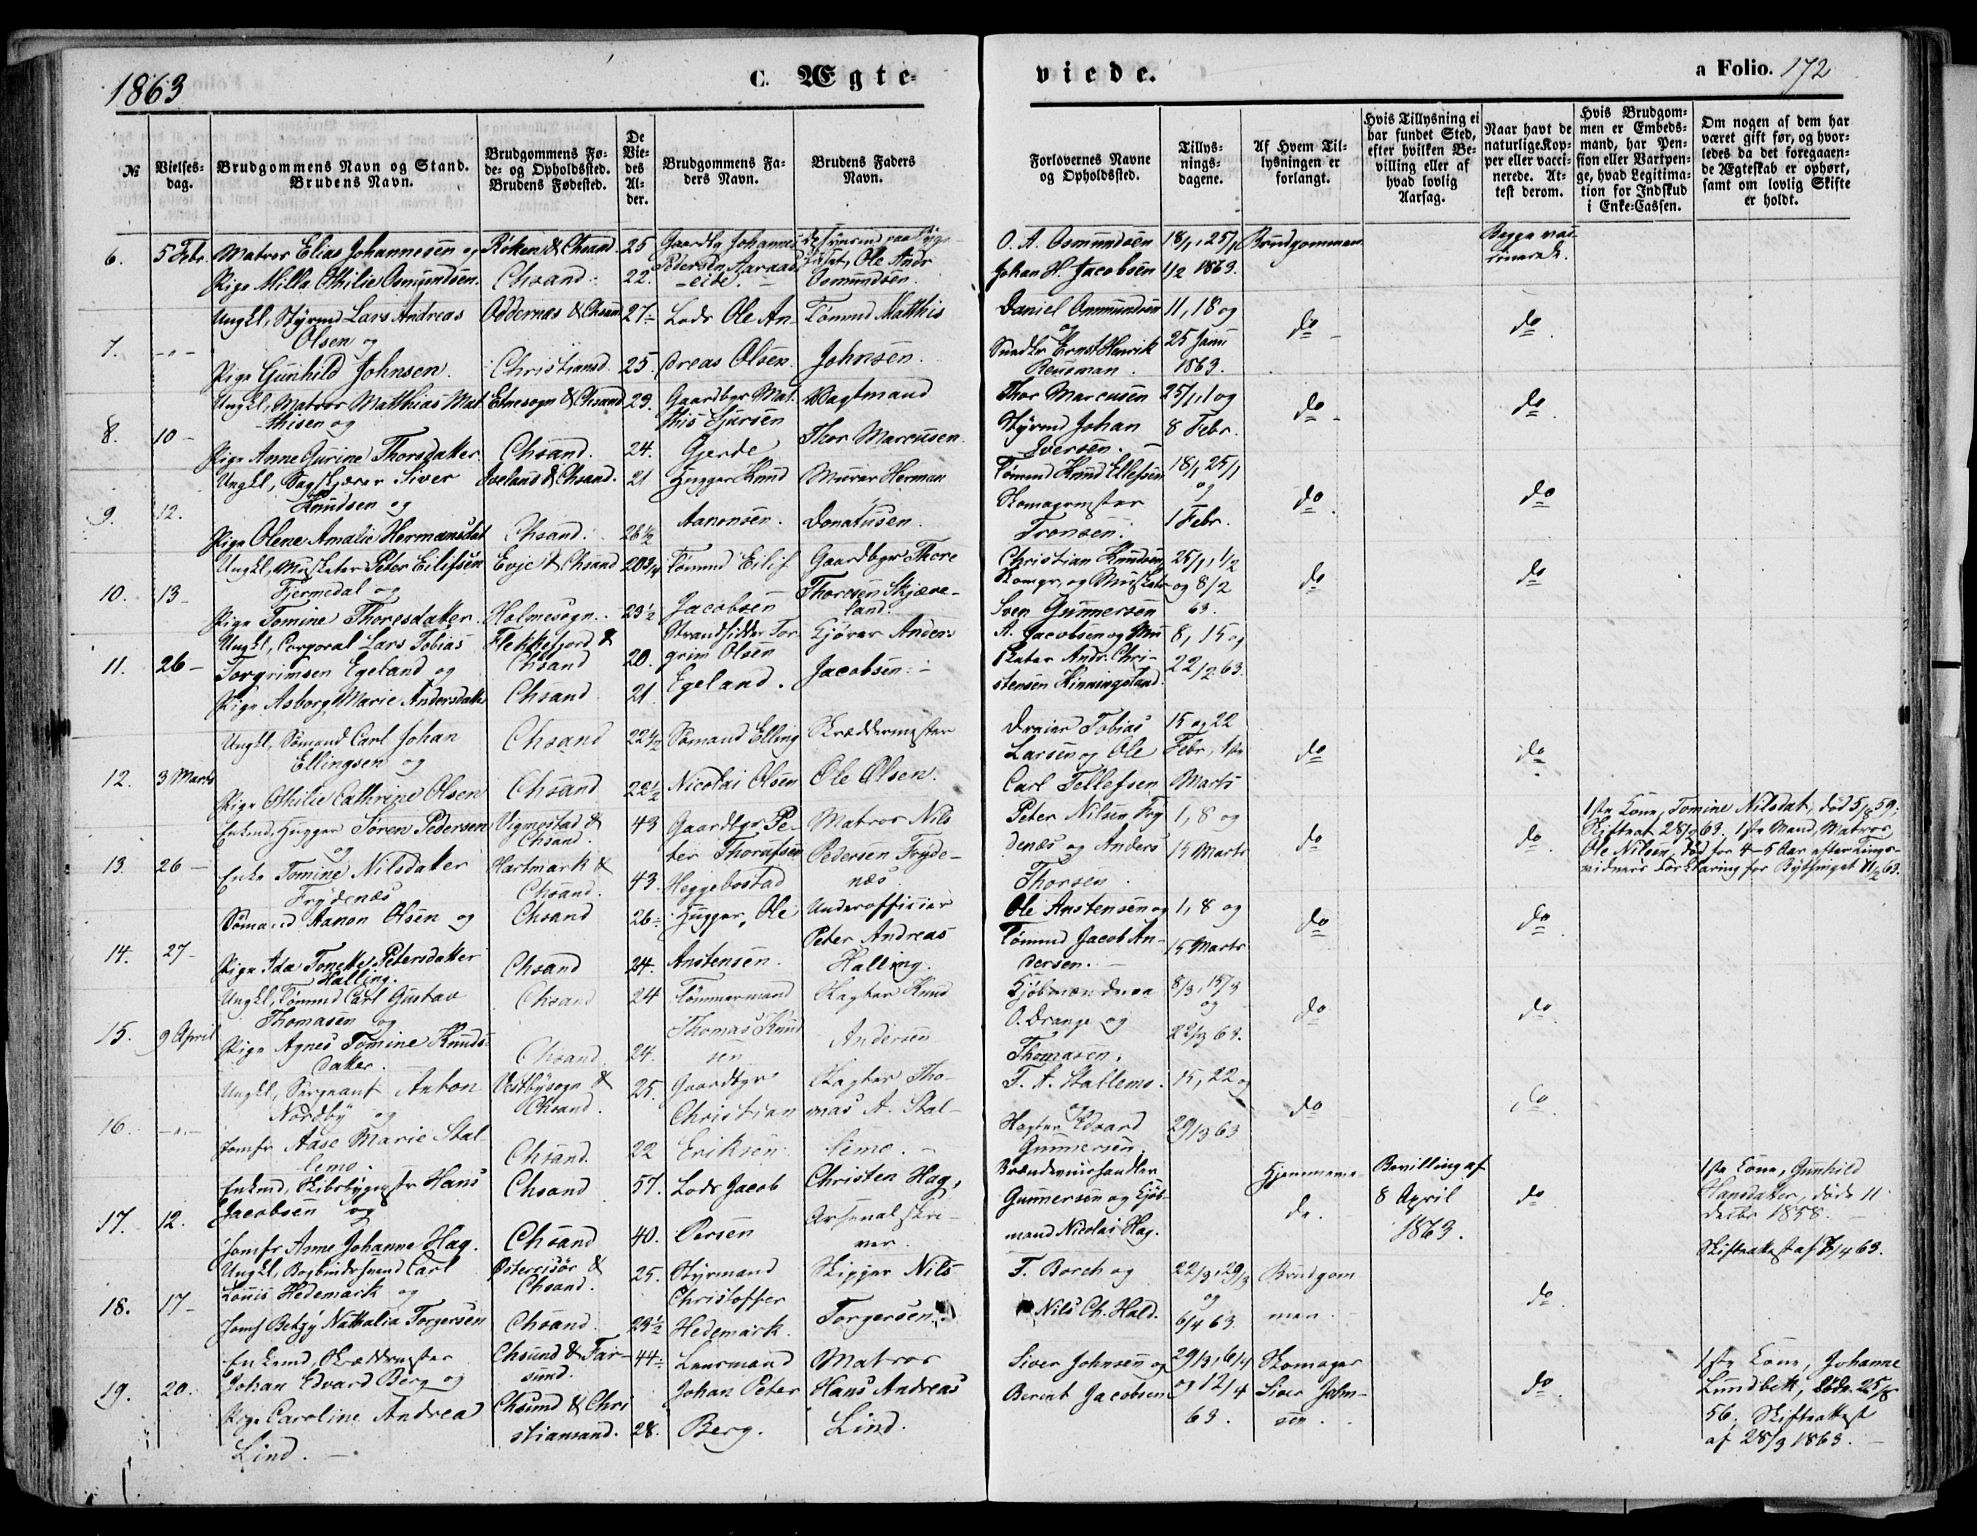 1863
C. Ægte-
viede.
a Folio. 172
№
Vielses-
dag.
Brudgommens Navn og Stand.
Brudens Navn.
Brudgommens Fø-
de- og Opholdssted.
Brudens Fødested.
De
Vie-
des
Al-
der.
Brudgommens Fa-
ders Navn.
Brudens Faders
Navn.
Forlovernes Navne
og Opholdssted.
Tillys-
nings-
dagene.
Af Hvem Til-
lysningen er
forlangt.
Hvis Tillysning ei
har fundet Sted,
efter hvilken Be-
villing eller af
hvad lovlig
Aarsag.
Naar havt de
naturlige Kop-
per eller vacci-
nerede. At-
test derom.
Hvis Brudgom-
men er Embeds-
mand, har Pen-
sion eller Vartpen-
ge, hvad Legitima-
tion for Indskud
i Enke-Cassen.
Om nogen af dem har
været gift før, og hvor-
ledes da det foregaaen-
de Ægteskab er ophørt,
samt om lovlig Skifte
er holdt.
6.
5 Febr.
Matros Elias Johannesen og
Pige Milla Othilie Osmundsen.
Chsand.
25
22.
Gaardbr Johannes
Pedersen Aaraas
Ole Andr
Osmundsen
O. A. Osmundsen
Johan H. Jacobsen
18/1, 25/1
1/2 1863.
Brudgommen
Begge vac-
cinerede.
7.
-"-
Ungkl, Styrmd Lars Andreas
Olsen og
Pige Gunhild Johnsen.
Oddernæs & Chsand
Christiansd.
27-
25.
Lods Ole An-
dreas Olsen.
Tømmd Matthis
Johnsen.
Daniel Osmundsen
og
Ernst Henrik
Reusman.
11, 18 og
25 Janu
1863.
do
do
8.
10-
Ungkl, Matros Matthias Mat
thisen og
Pige Anne Gurine Thorsdatter
Etnesogn & Chsand
Chsand.
23.
24.
Gaardbgr Mat
this Sjursen
Gjerde
Vagtmand
Thor Marcusen
Thor Marcusen
Styrmd Johan
Iversen.
25/1, 1 og
8 Febr.
do
do
9.
12.
Ungkl, Sagskjærer Siver
Knudsen og
Pige Olene Amalie Hermansdat
Iveland & Chsand.
Chsand.
21
26 1/2
Hugger Knud
Aanonsen.
Murer Herman
Donatusen.
Tømmd Knud Ellefsen
Skomagermster
Tronsen.
18/1, 25/1
og
1 Febr.
do
do
10.
13-
Ungkl, Musketer Peter Eilifsen
Fjermedal og
Pige Tomine Thoresdatter.
Evje & Chsand
Holmesogn.
20 3/4
23 1/2
Tømmd Eilif
Jacobsen
Gaardbgr Thore
Thoresen Skjæve-
land.
Christian Knudsen
Skomgr, og Musketer
Sven Gunnersen
25/1, 1/2
og 8/2
63.
do
do
11.
26-
Ungkl, Corporal Lars Tobias
Torgrimsen Egeland og
Pige Asborg Marie Andersdatter
Flekkefjord &
Chsand
Chsand.
20.
21.
Strandsidder Tor-
grim Olsen
Egeland.
Kjører Anders
Jacobsen.
A. Jacobsen og Mu
sketer Andr. Chri-
stensen Kinningsland.
8, 15 og
22/2 63.
12.
3 Marts
Ungkl, Sømand Carl Johan
Ellingsen og
Pige Othilie Cathrine Olsen
Chsand
Chsand
22 1/2
22 1/2
Sømand Elling
Nicolai Olsen
Skræddermster
Ole Olsen.
Dreier Tobias
Larsen og Ole
Carl Tellefsen
15 og 22
Febr, 1ste
Marts
do
do
13.
26-
Enkmd, Hugger Søren Pedersen
og
Enke Tomine Nilsdatter
Frydenæs
Vigmostad &
Chsand.
Hartmark &
Chsand.
43
43.
Gaardbgr Pe-
ter Thorufsen
Heggebostad
Matros Nils
Pedersen Fryde-
næs.
Peter Nilsen Fry
denæs og Anders
Thorsen.
1, 8 og
15 Marts
do
do
1ste Kone, Tomine Nilsdat, død 5/8 59,
Skifteat 28/2 63. 1ste Mand, Matros,
Ole Nilsen, død for 4-5 Aar efter Tings-
vidners Forklaring for Bythinget 11/2 63.
14.
27-
Sømand Aanon Olsen og
Pige Ida Tonette Petersdatter
Halling.
Chsand
Chsand
26-
24.
Hugger, Ole
Anstensen.
Underofficier
Peter Andreas
Halling.
Ole Anstensen og
Tømmd Jacob An-
dersen.
1, 8 og
15 Marts
do
do
15.
9 April
Ungkl, Tømmd Carl Gustav
Thomasen og
Pige Agnes Tomine Knuds-
datter.
Chsand
Chsand.
24
24.
Tømmermand
Thomas Knud
sen
Vagter Knud
Andersen
Kjøbmændene
O. Drange og
Thomasen.
8/3, 15/3
og
22/3 63.
do
do
16.
-"-
Ungkl, Sergeant Anton
Nordby og
Jomfr Aase Marie Stal
lemo.
Vestbysogn &
Chsand.
Chsand.
25.
22
Gaardbgr
Christian
Eriksen
Vagter Tho-
mas A. Stal-
lemo.
T. A. Stallemo.
og
Vagter Edvard
Gunnersen
15, 22 og
29/3 63
do
do
17.
12.
Enkmd, Skibsbygmstr Hans
Jacobsen og
Jomfr Anne Johanne Hag.
Chsand
Chsand
57.
40.
Lods Jacob
Persen
Christen Hag,
Arsenalskri-
ver.
Brændeviinshandler
Gunnersen og Kjøb-
mand Nicolai Hag.
Hjemmeviede.
Bevilling af
8 April
1863.
do
1ste Kone, Gunhild
Hansdatter, døde 11
decbr 1858.
Skifteattest af 7/4 63.
18.
17-
Ungkl, Bogbindersvend Carl
Louis Hedemark og
Jomf Betzy Nathalia Torgersen
Østerrisør &
Chsand.
Chsand.
25.
23 1/2
Styrmand
Christoffer
Hedemark.
Skipper Nils
Torgersen.
F. Borch og
Nils Ch. Hald.
22/3, 29/3
og
6/4 63.
Brudgom
men
do
19.
20.
Enkemd, Skræddermster
Johan Edvard Berg og
Pige Caroline Andrea
Lind.
Chsund & Far-
sund.
Chsund & Chri
stiansand.
44-
28.
Lensmand
Johan Peter
Berg.
Matros
Hans Andreas
Lind.
Siver Johnsen og
Berent Jacobsen
29/3, 6/4
og 12/4
63.
Skomager
Siver John-
sen.
do
1ste Kone, Johanne
Lundbek, døde 25/8
56. Skifteattest
af 28/3 1863.